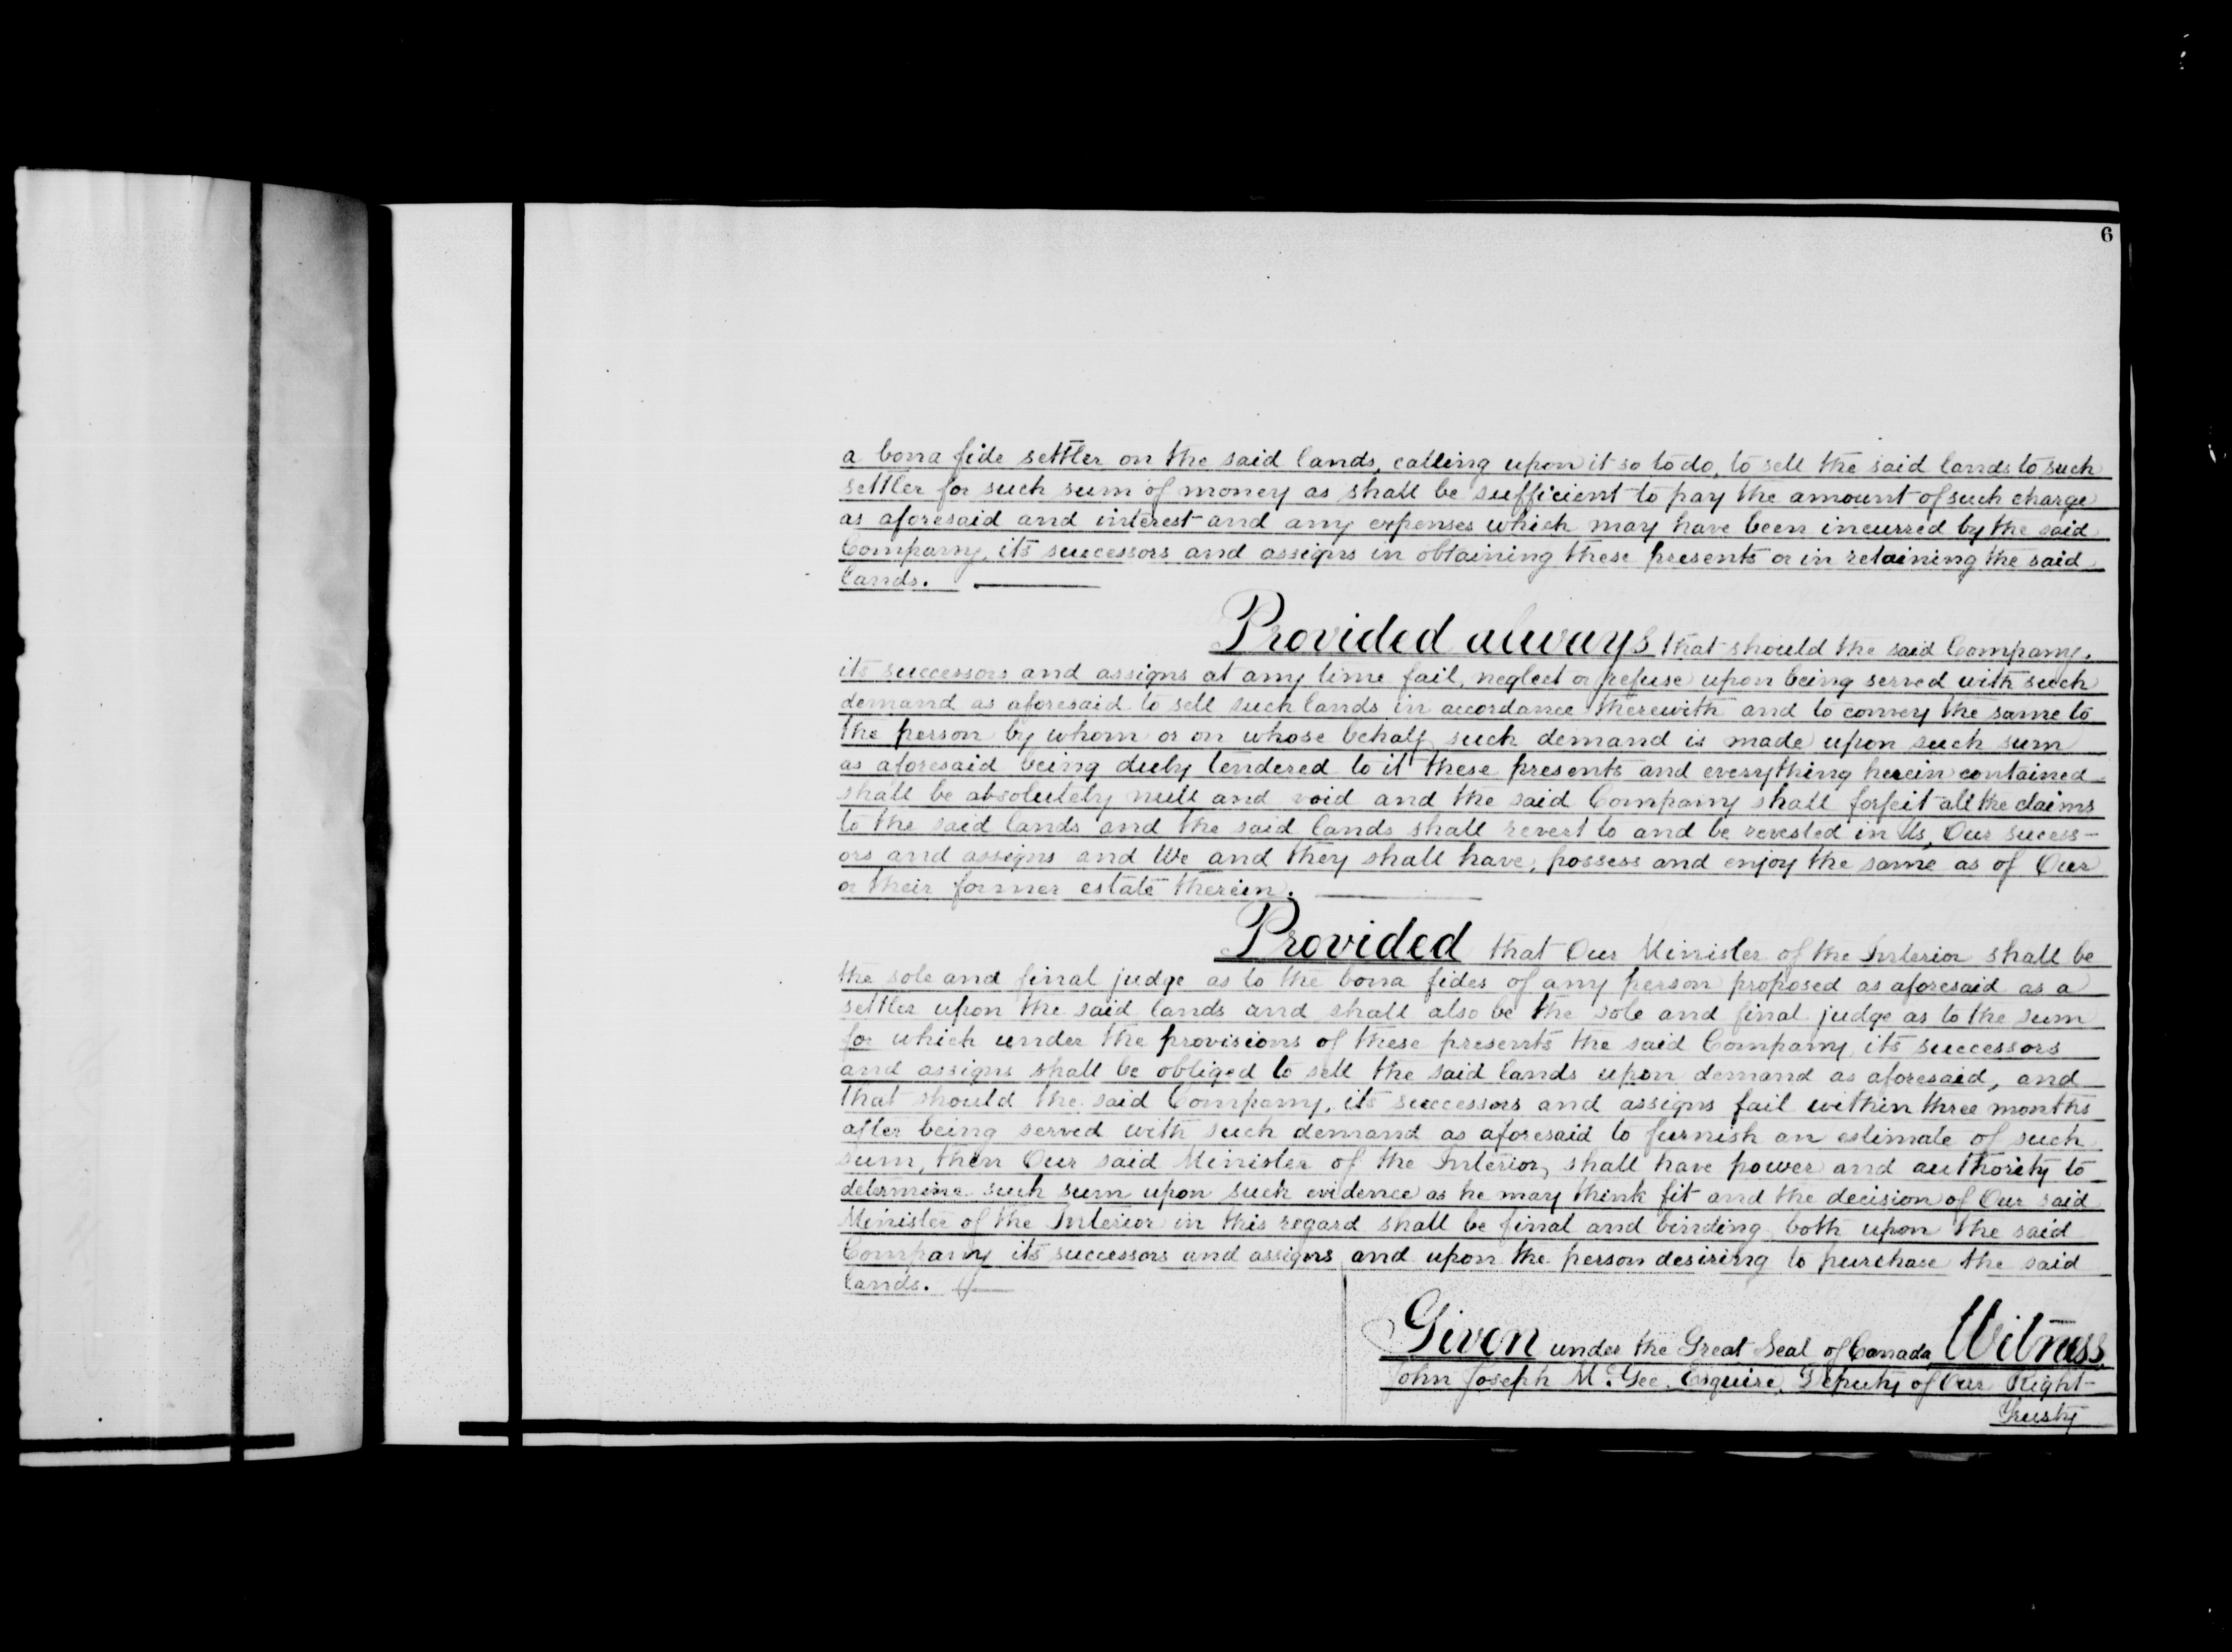 6
a bona fide settler on the said lands, calling upon it so to do, to sell the said lands to such
settler for such sum of money as shall be sufficient to pay the amount of such charge
as aforesaid and interest and any expenses which may have been incurred by the said
Company, its successors and assigns in obtaining these presents or in retaining the said
lands.
Provided always that should the said Company,
its successors and assigns at any time fail, neglect or refuse upon being served with such
demand as aforesaid to sell such lands in accordance therewith and to convey the same to
the person by whom or on whose behalf such demand is made upon such sum
as aforesaid being duly tendered to it these presents and everything herein contained
shall be absolutely null and void and the said Company shall forfeit all the claims
to the said lands and the said lands shall revert to and be revested in Us, Our sucess-
ors and assigns and We and they shall have, possess and enjoy the same as of Our
or their former estate therein.
Provided that Our Minister of the Interior shall be
the sole and final judge as to the bona fides of any person proposed as aforesaid as a
settler upon the said lands and shall also be the sole and final judge as to the sum
for which under the provisions of these presents the said Company, its successors
and assigns shall be obliged to sell the said lands upon demand as aforesaid, and
that should the said Company, its successors and assigns fail within three months
after being served with such demand as aforesaid to furnish an estimate of such
sum, then Our said Minister of the Interior, shall have power and authority to
determine such sum upon such evidence as he may think fit and the decision of Our said
Minister of the Interior in this regard shall be final and binding both upon the said
Company its successors and assigns and upon the person desiring to purchase the said
lands.
Given under the Great Seal of Canada Witness
John Joseph McGee, Esquire, Deputy of Our Right-
Trusty